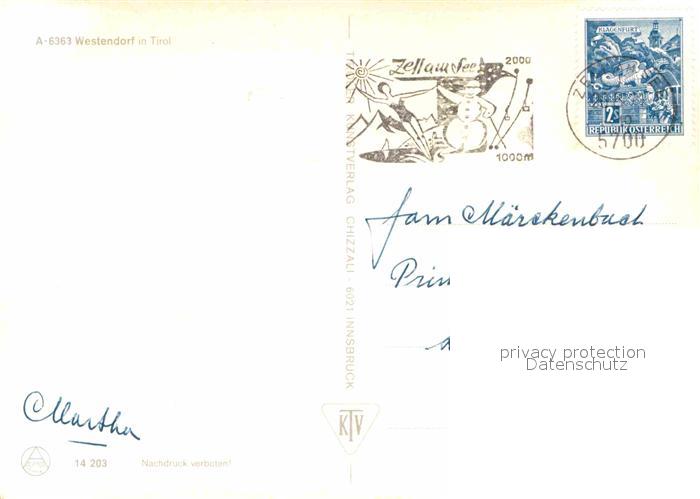 A-6363 Westendorf in Tirol
Zell am See
2000
1000m
KLAGENFURT
2S
REPUBLIK ÖSTERREICH
5700
KUNSTVERLAG CHIZZALI · 6021 INNSBRUCK
Fam Märckenbach
Prin
a
privacy protection
Datenschutz
Martha
KTV
14 203 Nachdruck verboten!